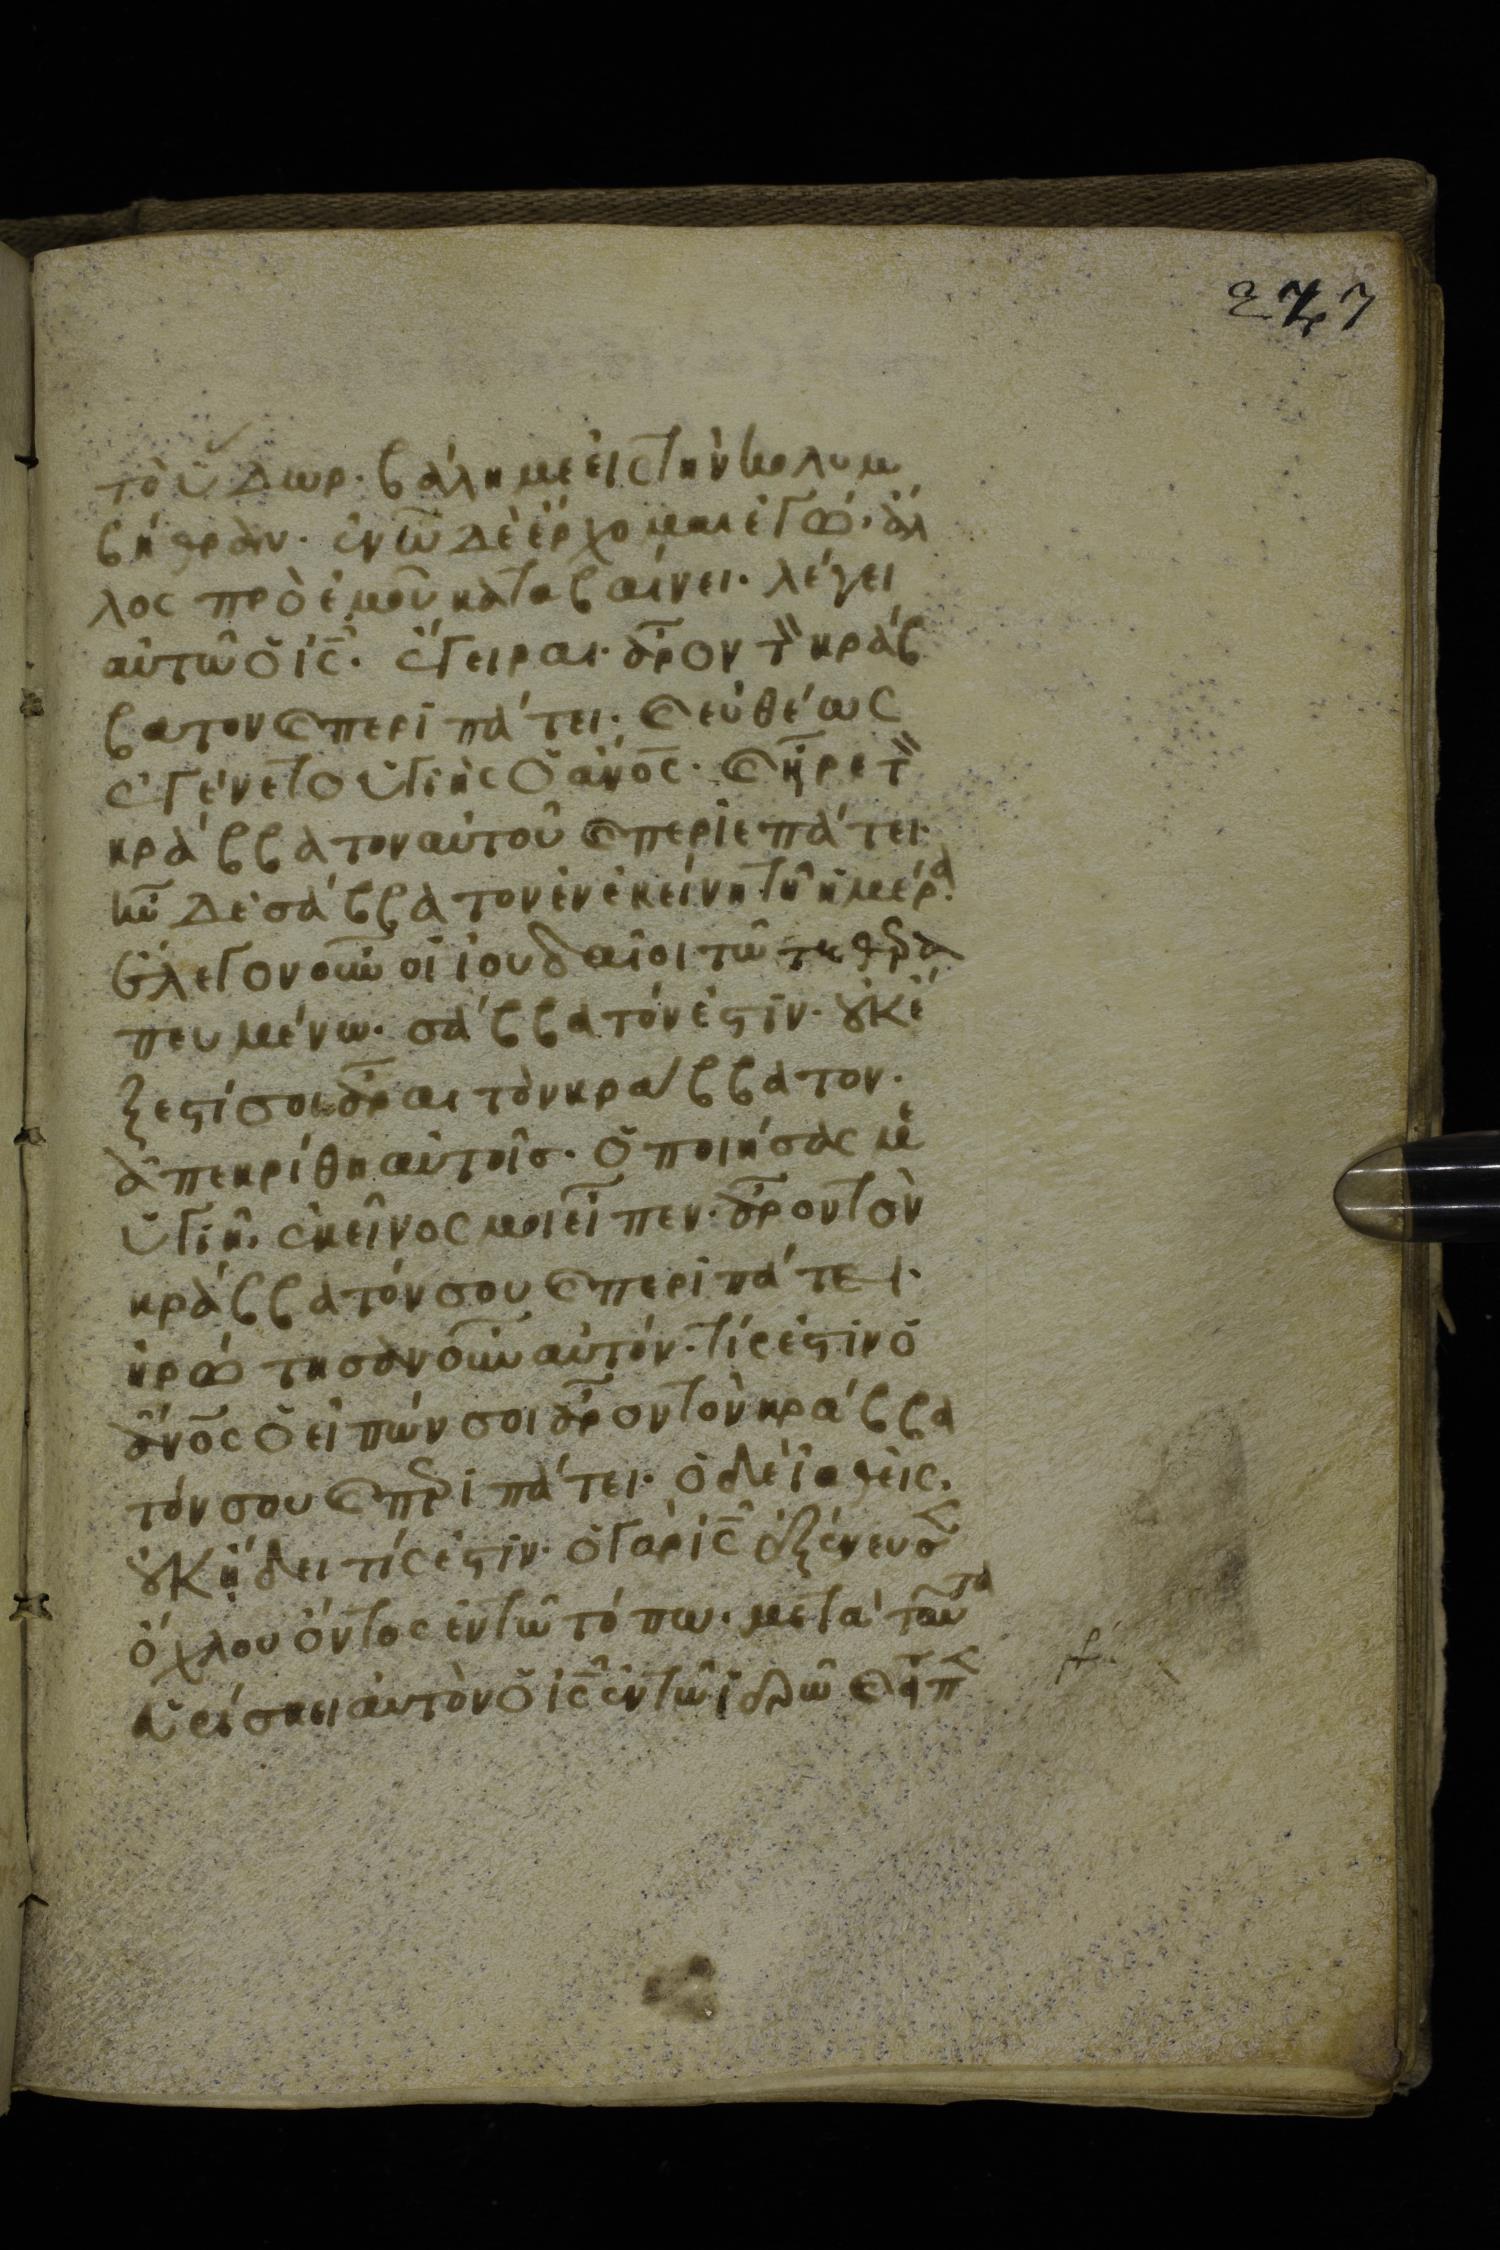 277
τὸ ὕδωρ. βάλη με εἰς τὴν κολυμ
βήθραν. ἐν ὧ δὲ ἔρχομαι ἐγώ. ἄλ
λος πρὸ ἐμοῦ καταβαίνει. λέγει
αὐτῶ ὁ ἰς̅. ἔγειραι. ἆρον τ̏ κράβ
βατον ϗ περιπάτει. ϗ εὐθέως
ἐγένετο ὑγιὴς ὁ ἄν̅ος. ϗ ἦρε τ̏
κράββατον αὐτοῦ ϗ περιεπάτει.
ἦν δὲ σάββατον ἐν ἐκείνη τῆ ἡμέρα.
ἔλεγον οὖν οἱ ἰουδαῖοι τῶ τεθερα
πευμένω. σάββατόν ἐστιν. οὐκ ἔ
ξεστί σοι ἆραι τὸν κράββατον.
ἀπεκρίθη αὐτοῖσ. ὁ ποιήσας με
ὑγιῆ. ἐκεῖνος μοι εἶπεν. ἆρον τὸν
κράββατόν σου ϗ περιπάτει.
ἠρώτησαν οὖν αὐτόν. τίς ἐστιν ὁ
ἄν̅ος ὁ εἰπών σοι ἆρον τὸν κράββα
τόν σου ϗ περιπάτει. ὁ δὲ ἰαθεὶς.
οὐκ ἤδει τίς ἐστιν. ὁ γὰρ ἰς̅ ἐξένευσε
ὄχλου ὄντος ἐν τῶ τόπω. μετὰ ταῦτα
εὑρίσκει αὐτὸν ὁ ἰς̅ ἐν τῶ ἱερῶ ϗ εἶπε